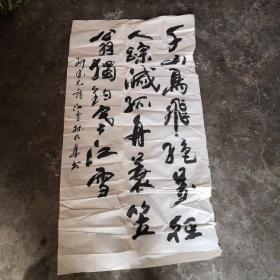 千山鳥飛绝萬径
人踪滅孤舟蓑笠
翁獨釣寒江雪
柳宗元詩江雪